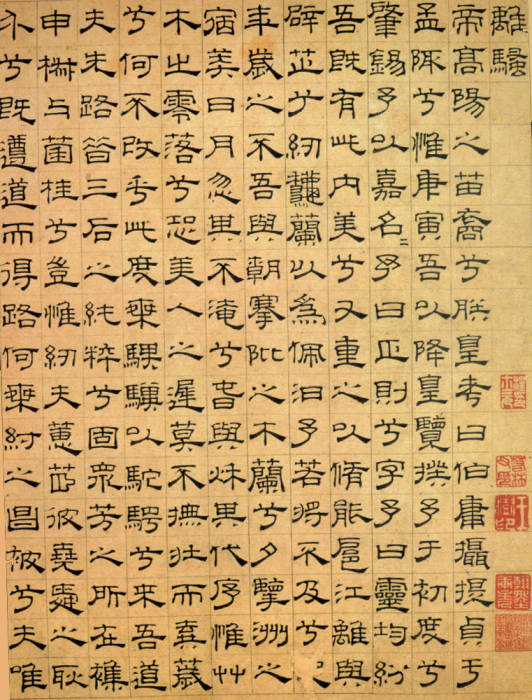 離騷
帝高陽之苗裔兮朕皇考曰伯庸攝提貞于
孟陬兮惟庚寅吾以降皇覽揆予于初度兮
肇錫予以嘉名〻予曰正則兮字予曰靈均紛
吾既有此內美兮又重之以脩能扈江離與
辟芷兮紉龝蘭以為佩汩予若將不及兮恐
年歲之不吾與朝搴阰之木蘭兮夕擥洲之
宿莽日月忽其不淹兮春與秋其代序惟艸
木之零落兮恐美人之遲莫不撫壯而棄薉
兮何不改乎此度乘騏驥以駝騁兮來吾道
夫先路昔三后之純粹兮固衆芳之所在襍
申椒与菌桂兮豈惟紉夫蕙茝彼堯舜之耿
介兮既遵道而得路何桀紂之昌被兮夫唯